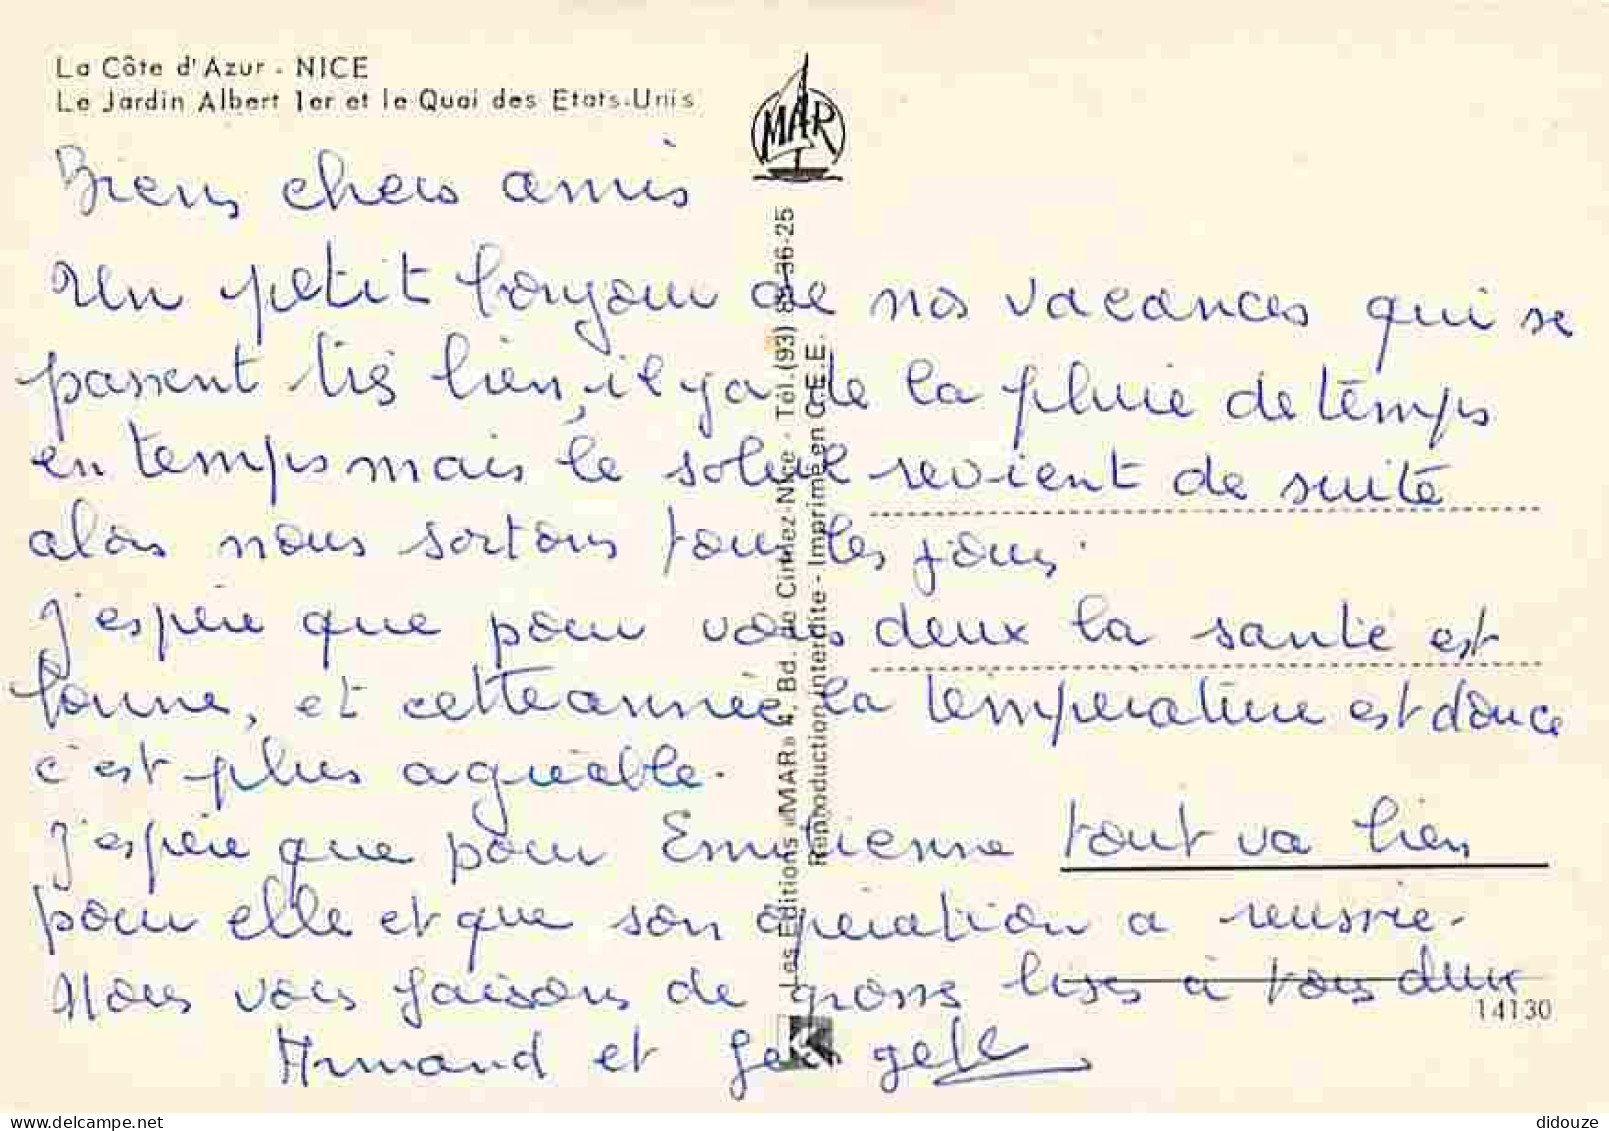 La Côte d'Azur - NICE
Le Jardin Albert 1er et le Quai des Etats-Unis
MAR
Biens chers amis
Un petit bonjour de nos vacances qui se
passent très bien, il y a de la pluie de temps
en temps mais le soleil revient de suite
alors nous sortons tous les jours.
J'espère que pour vous deux la santé est
bonne, et cette année la température est douce
c'est plus agréable.
J'espère que pour Emilienne tout va bien
pour elle et que son opération a reussie.
Nous vous faisons de grosses bises à tous deux
Armand et Georgete
Les Editions «MAR» 4, Bd. de Cimiez-Nice - Tél. (93) 36-25
Reproduction interdite - Imprimé en C.E.E.
K
14130
delcampe.net
didouze